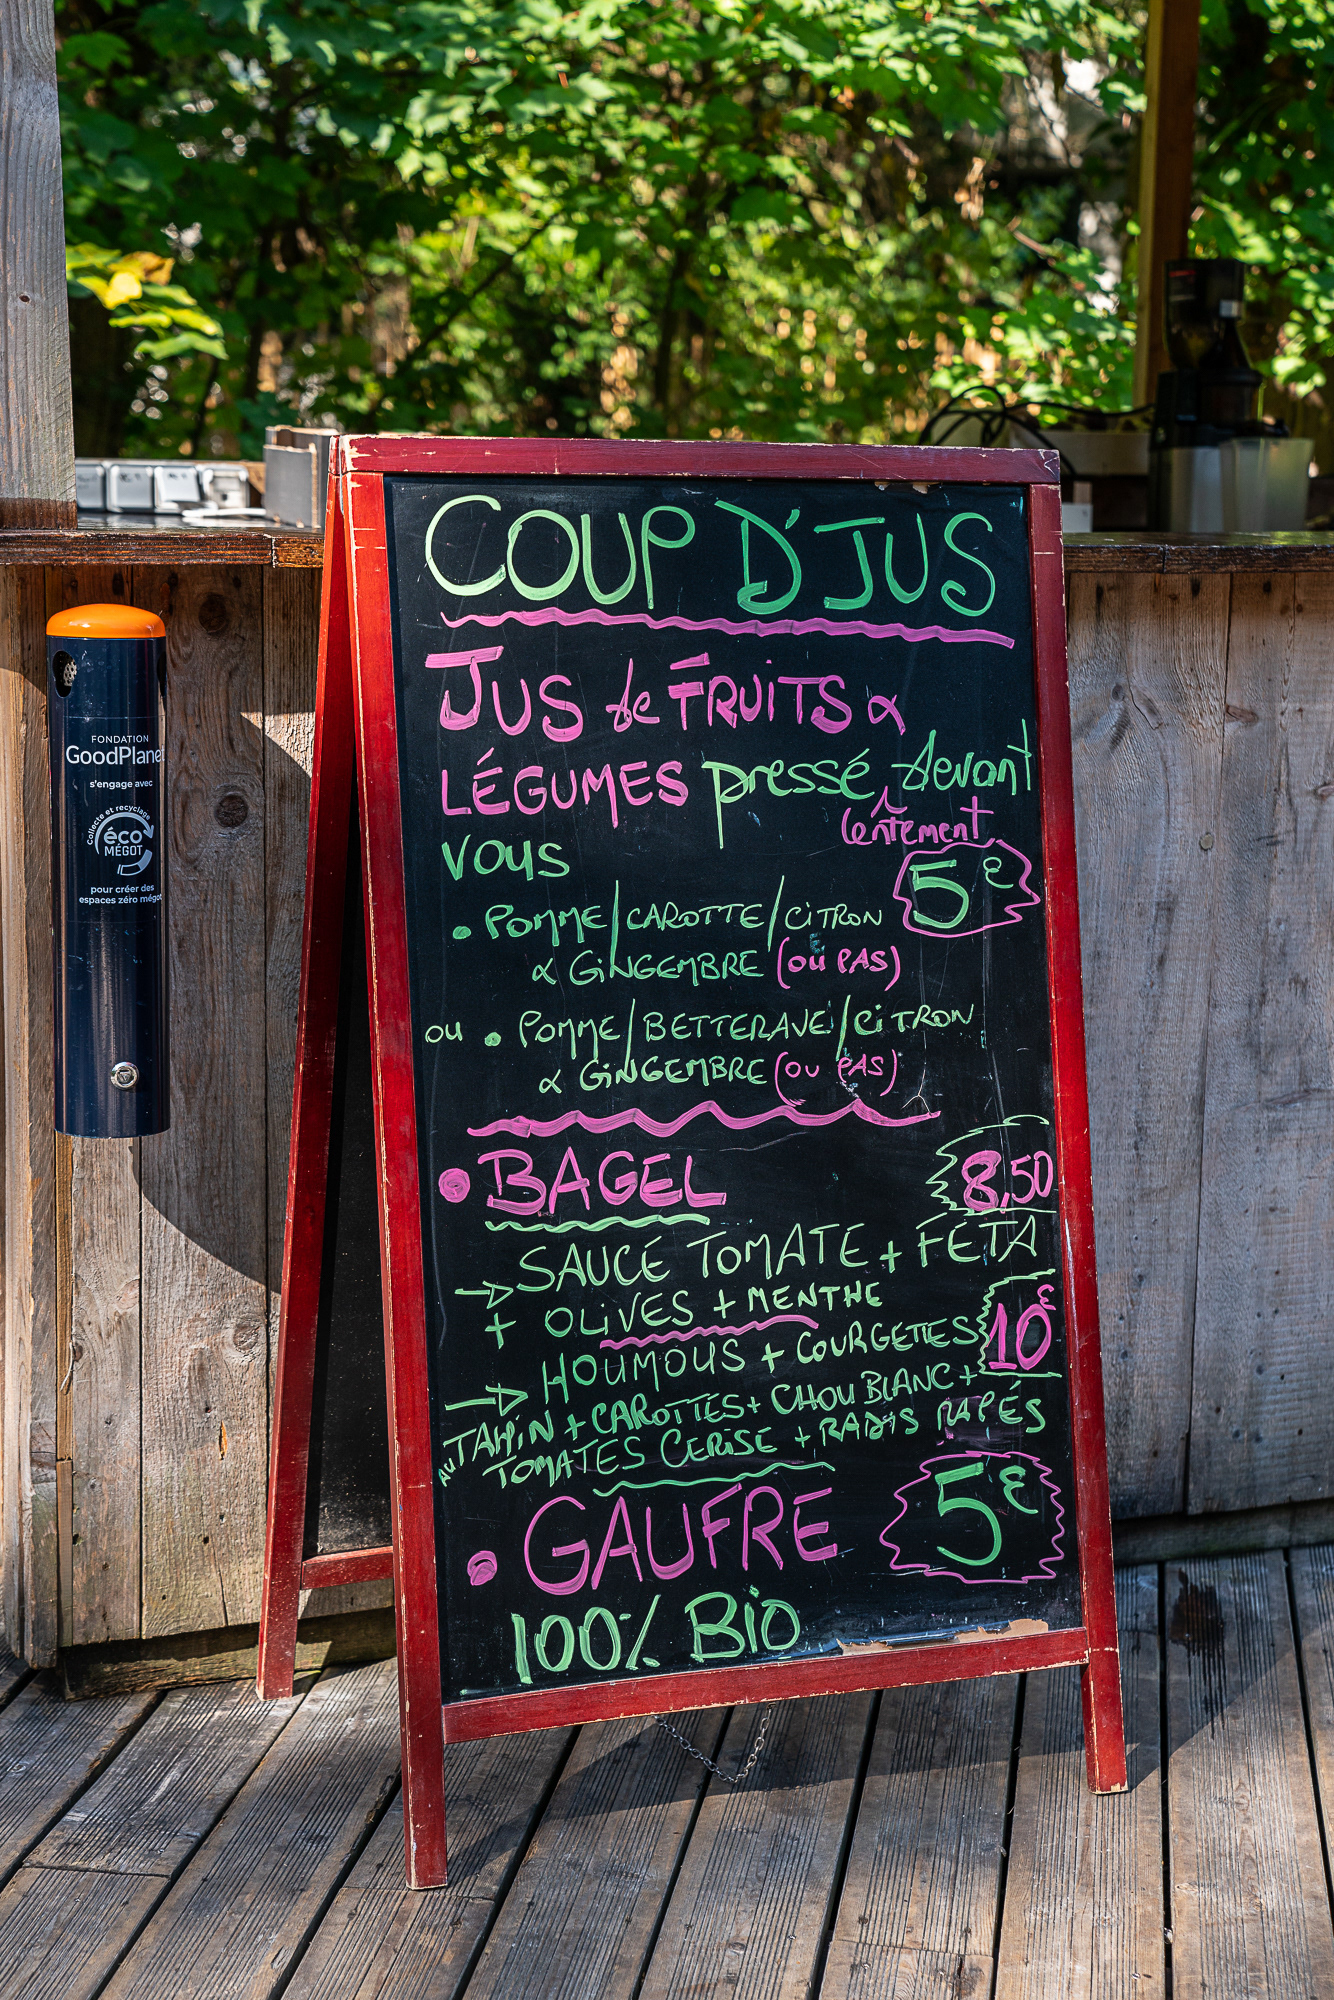 COUP D'JUS
JUS de FRUITS &
LÉGUMES pressé devant
lentement
VOUS
5€
• POMME/CAROTTE/CITRON
& GINGEMBRE (OU PAS)
OU • POMME/BETTERAVE/CITRON
& GINGEMBRE (OU PAS)
• BAGEL
8,50
→ SAUCE TOMATE + FETA
+ OLIVES + MENTHE
10€
→ HOUMOUS + COURGETTES
AU TAHIN + CAROTTES + CHOU BLANC +
TOMATES CERISE + RADIS RAPÉS
• GAUFRE
5€
100% BiO
FONDATION
GoodPlane
s'engage avec
Collecte et recyclage
éco
MÉGOT
pour créer des
espaces zéro mégot